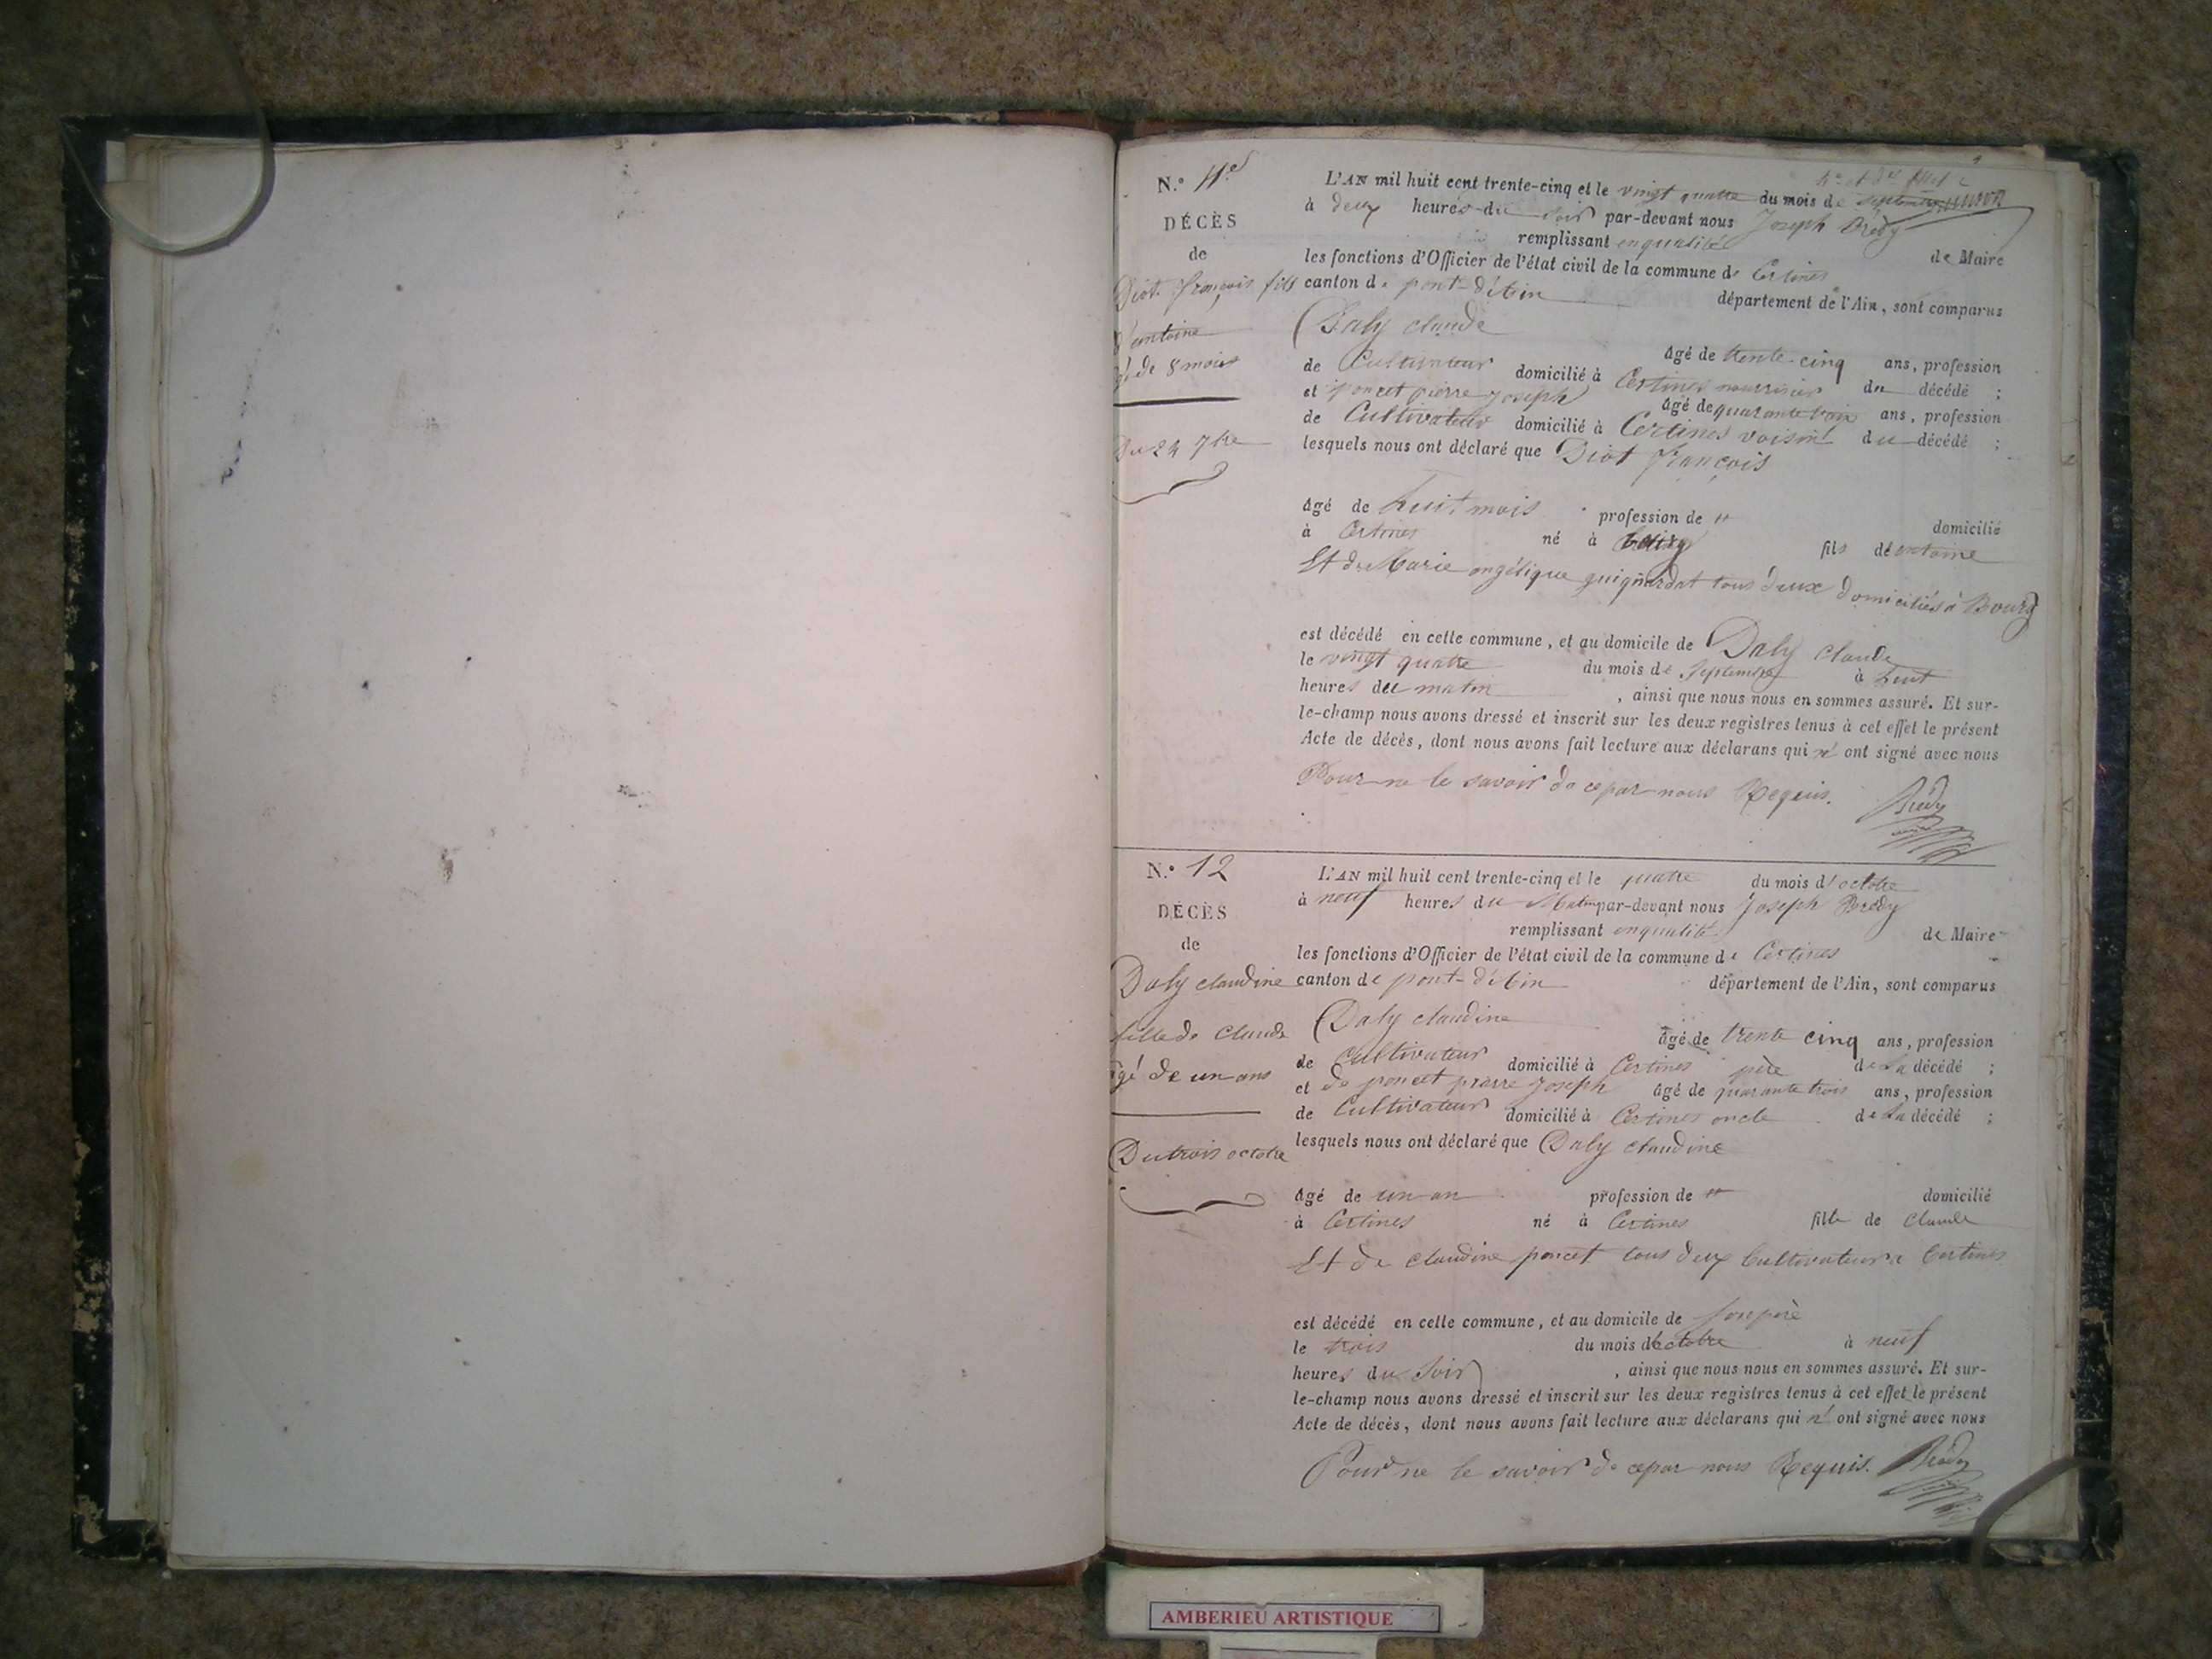 N.° 11e
DÉCÈS
de
Diot françois fils
d'antoine
gé de 8 mois
Du 24 7bre
L'AN mil huit cent trente-cinq et le vingt quatre du mois de septembre
à deux heures du soir par-devant nous Joseph Brédy
remplissant en qualité de Maire
les fonctions d'Officier de l'état civil de la commune de Certines
canton de pont-d'Ain département de l'Ain, sont comparus
Daly claude
âgé de trente-cinq ans, profession
de Cultivateur domicilié à Certines nourricier du décédé ;
et poncet pierre joseph âgé de quarante trois ans, profession
de Cultivateur domicilié à Certines voisin du décédé ;
lesquels nous ont déclaré que Diot françois
âgé de huit mois profession de " domicilié
à Certines né à bourg fils d'antoine
Et de Marie angélique guignardat tous deux domiciliés à Bourg
est décédé en cette commune, et au domicile de Daly claude
le vingt quatre du mois de septembre à huit
heures du matin , ainsi que nous nous en sommes assuré. Et sur-
le-champ nous avons dressé et inscrit sur les deux registres tenus à cet effet le présent
Acte de décès, dont nous avons fait lecture aux déclarans qui n'ont signé avec nous
Pour ne le savoir de ce par nous Requis.
Brédy
N.° 12
DÉCÈS
de
Daly claudine
fille de Claude
gé de un ans
Du trois octobre
L'AN mil huit cent trente-cinq et le quatre du mois d'octobre
à neuf heures du Matin par-devant nous Joseph Brédy
remplissant en qualité de Maire
les fonctions d'Officier de l'état civil de la commune de Certines
canton de pont-d'Ain département de l'Ain, sont comparus
Daly claudine
âgé de trente cinq ans, profession
de Cultivateur domicilié à Certines père de la décédé ;
et de poncet pierre joseph âgé de quarante trois ans, profession
de Cultivateur domicilié à Certines oncle de la décédé ;
lesquels nous ont déclaré que Daly claudine
âgé de un an profession de " domicilié
à Certines né à Certines fille de Claude
Et de claudine poncet tous deux Cultivateur à Certines
est décédé en cette commune, et au domicile de son père
le trois du mois d'octobre à neuf
heures du soir , ainsi que nous nous en sommes assuré. Et sur-
le-champ nous avons dressé et inscrit sur les deux registres tenus à cet effet le présent
Acte de décès, dont nous avons fait lecture aux déclarans qui n'ont signé avec nous
Pour ne le savoir de ce par nous Requis.
Brédy
AMBERIEU ARTISTIQUE